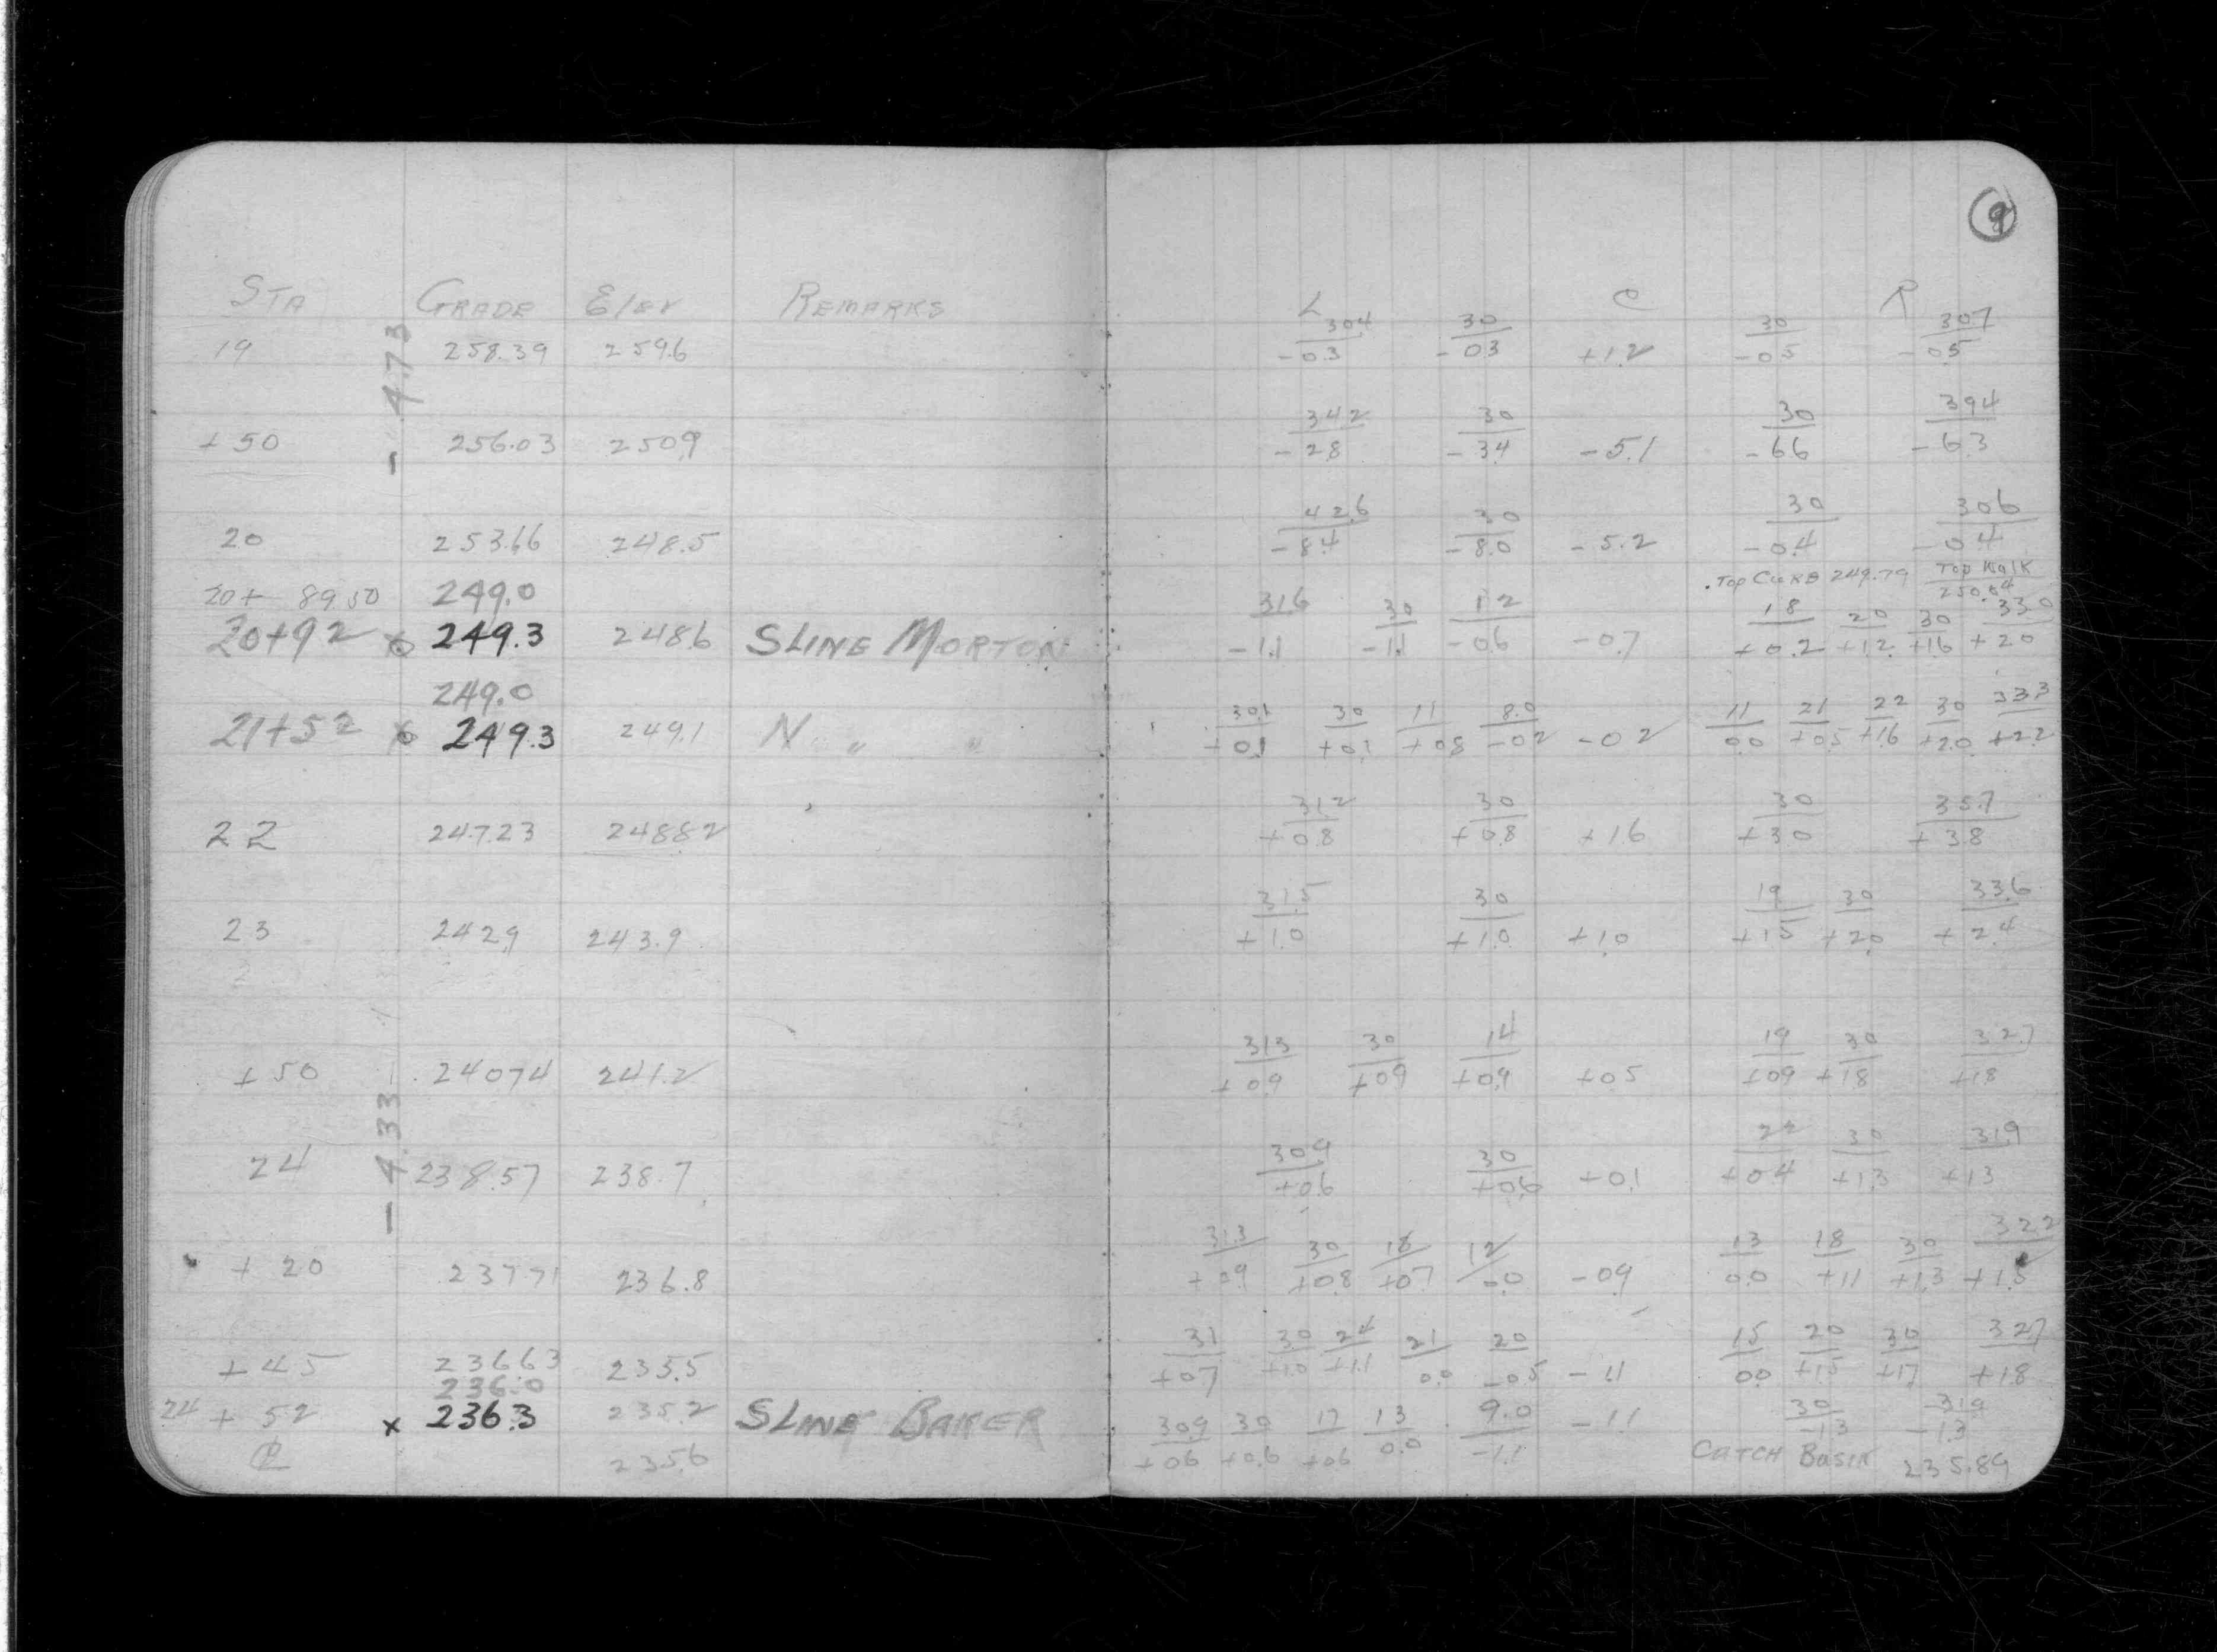 9
STA GRADE Elev REMARKS L C R
30.4 30 30 30.7
19 258.39 259.6 -0.3 -0.3 +1.2 -0.5 -0.5
- 4.73
34.2 30 30 39.4
+50 256.03 250.9 -2.8 -3.4 -5.1 -6.6 -6.3
42.6 30 30 30.6
20 253.66 248.5 -8.4 -8.0 -5.2 -0.4 -0.4
Top Curb 249.79 Top Walk 250.04
20+ 89.50 249.0
31.6 30 12 18 20 30 33.0
20+92 x 249.3 248.6 SLINE MORTON -1.1 -1.1 -0.6 -0.7 +0.2 +1.2 +1.6 +2.0
249.0
30.1 30 11 8.0 11 21 22 30 33.3
21+52 x 249.3 249.1 N " " +0.1 +0.1 +0.8 -0.2 -0.2 0.0 +0.5 +1.6 +2.0 +2.2
31.2 30 30 35.7
22 247.23 248.82 +0.8 +0.8 +1.6 +3.0 +3.8
31.5 30 19 30 33.6
23 242.9 243.9 +1.0 +1.0 +1.0 +1.5 +2.0 +2.4
31.3 30 14 19 30 32.7
+50 240.74 241.2 +0.9 +0.9 +0.9 +0.5 +0.9 +1.8 +1.8
- 4.33
30.9 30 22 30 31.9
24 238.57 238.7 +0.6 +0.6 +0.1 +0.4 +1.3 +1.3
31.3 30 18 12 13 18 30 32.2
+20 237.71 236.8 +0.9 +0.8 +0.7 -0.0 -0.9 0.0 +1.1 +1.3 +1.5
31 30 24 21 20 15 20 30 32.7
+45 236.63 235.5 +0.7 +1.0 +1.1 0.0 -0.5 -1.1 0.0 +1.5 +1.7 +1.8
236.0
30.9 30 17 13 9.0 30 31.9
24 +52 x 236.3 235.2 SLINE BAKER +0.6 +0.6 +0.6 0.0 -1.1 -1.1 -1.3 -1.3
235.6 CATCH Basin 235.89